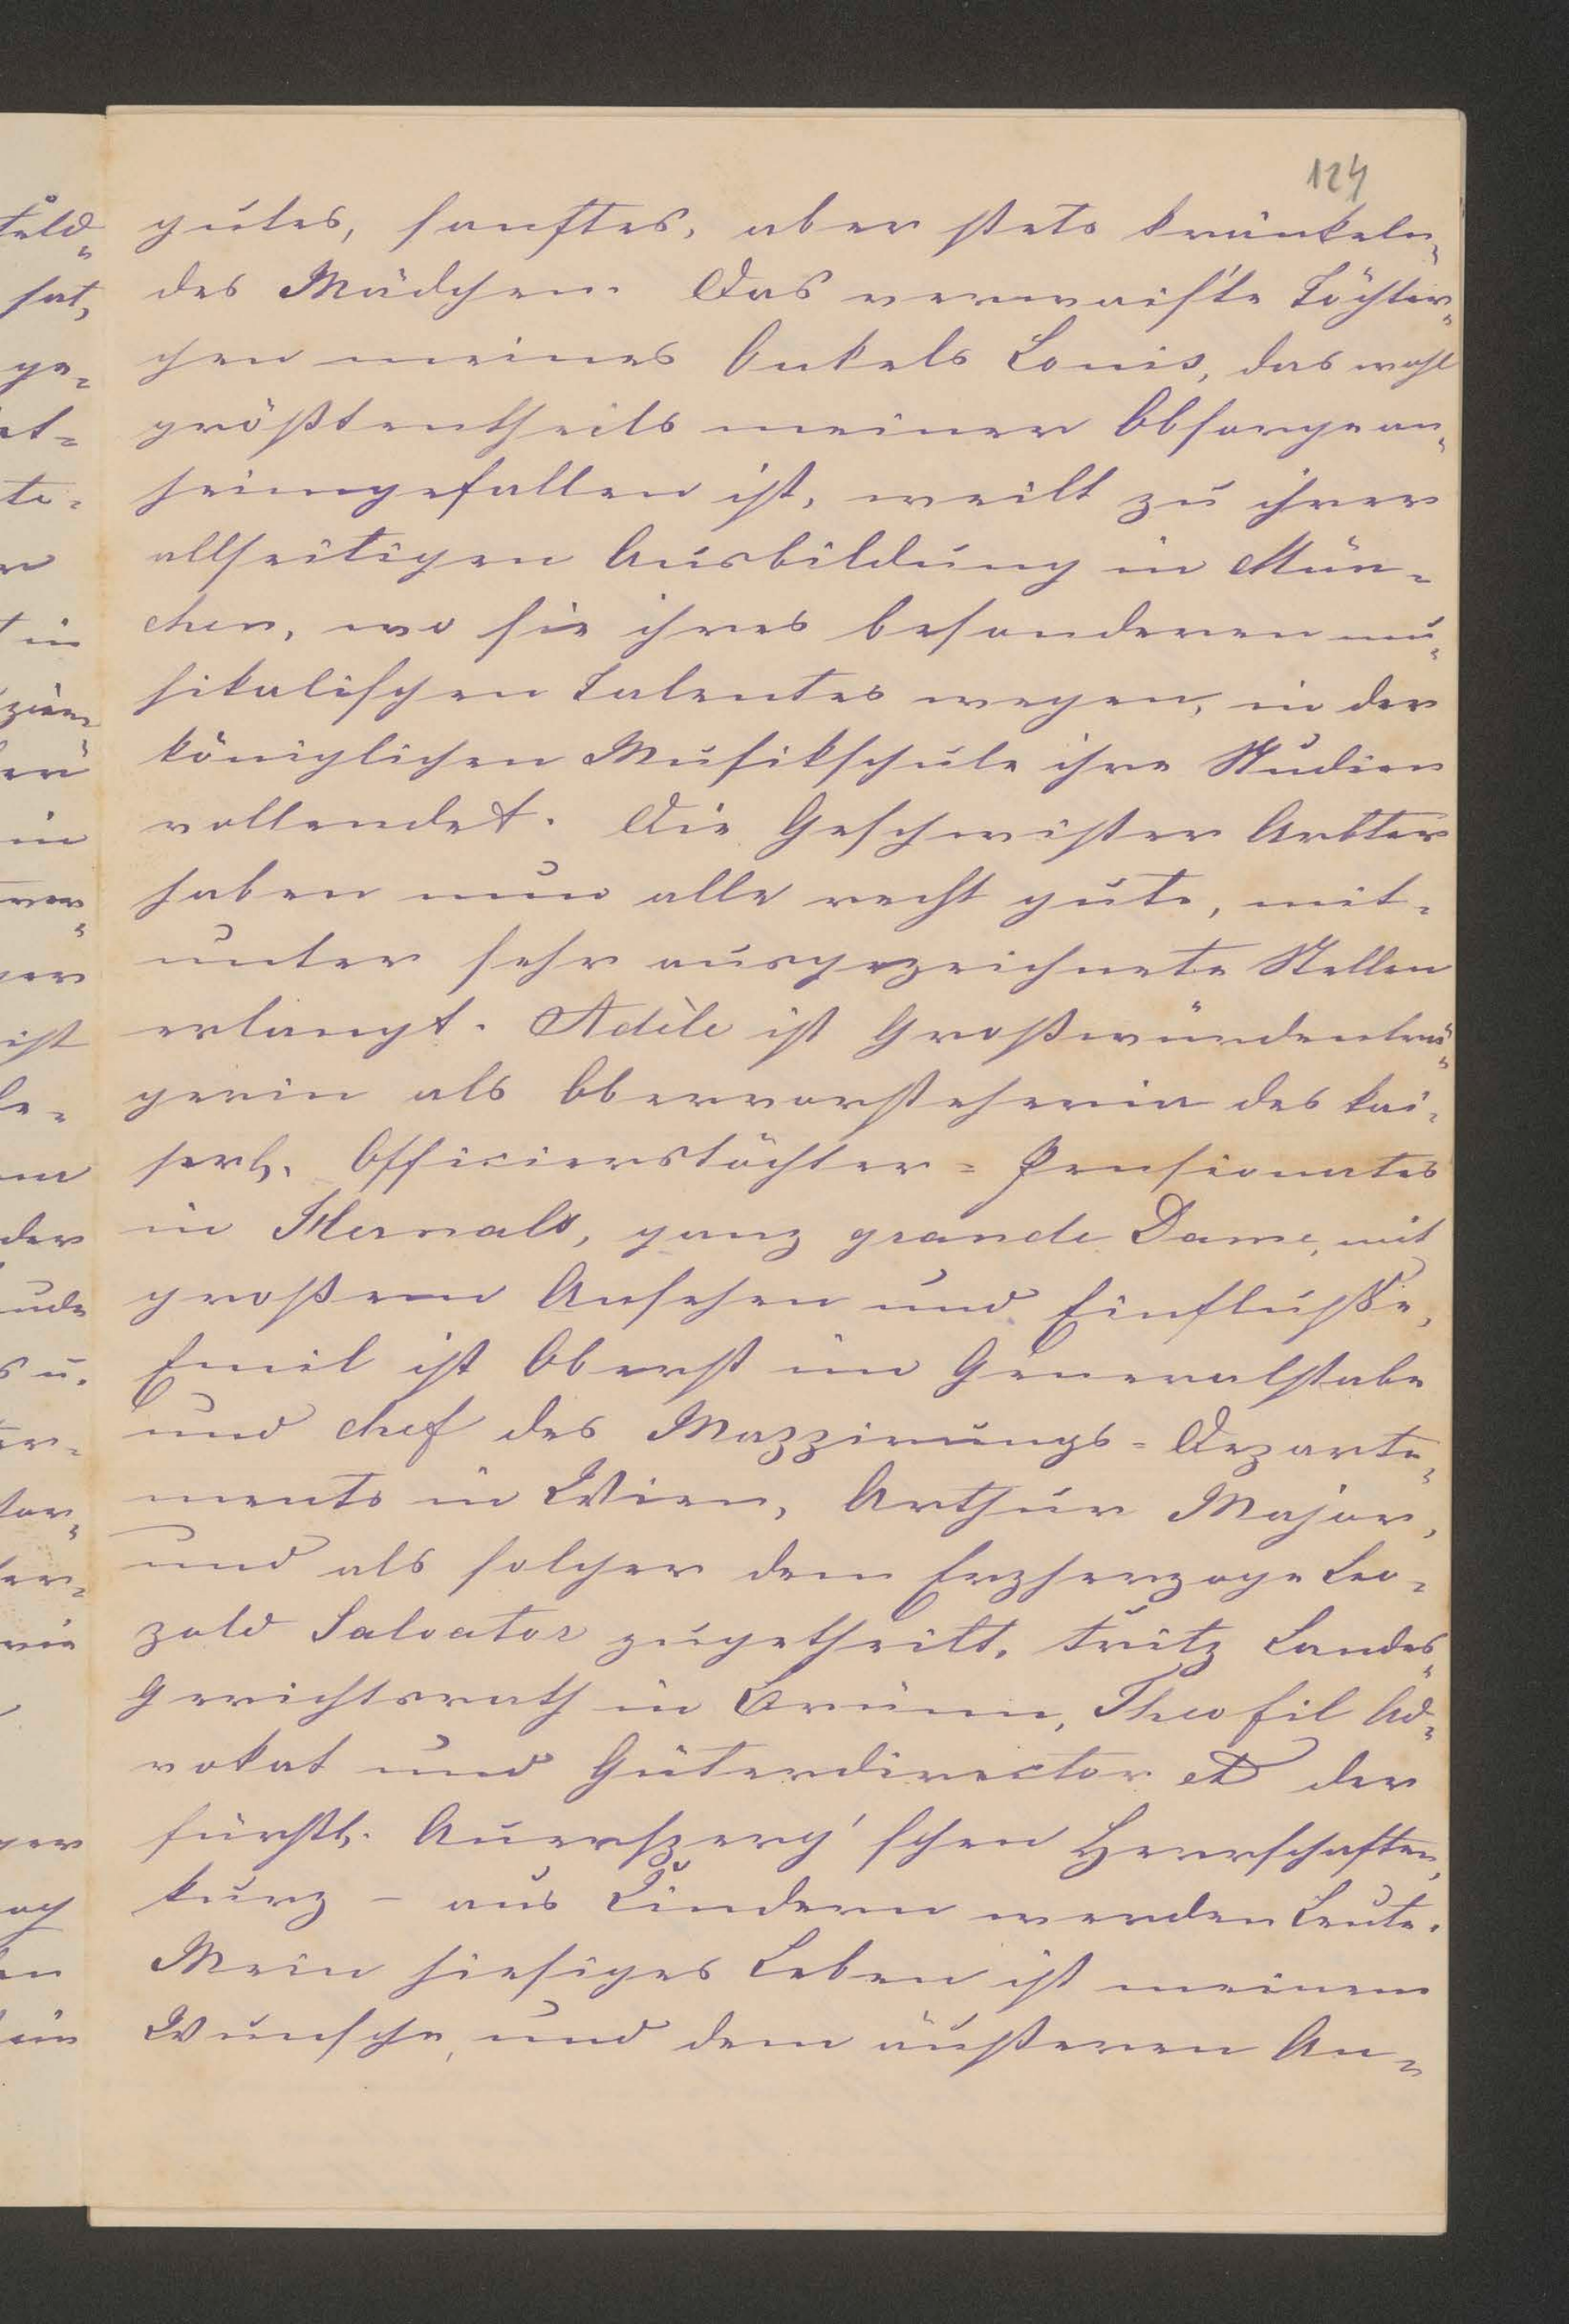 124
gutes, sanftes, aber stets kränkeln-
des Mädchen. Das verwais'te Töchter-
chen meines Onkels Louis, das wohl
größtentheils meiner Obsorge an-
heimgefallen ist, weilt zu ihrer
allseitigen Ausbildung in Mün-
chen, wo sie ihres besonderen mu-
sikalischen Talentes wegen, in der
königlichen Musikschule ihre Studien
vollendet. Die Geschwister Arbter
haben nun alle recht gute, mit-
unter sehr ausgezeichnete Stellen
erlangt. Adèle ist Großwürdenträ-
gerin als Obervorsteherin des kai-
serl. Officierstöchter-Pensionates
in Hernals, ganz grande Dame, mit
großem Ansehen und Einfluße,
Emil ist Oberst im Generalstabe
und Chef des Mappirungs-Departe-
ments in Wien, Arthur Major,
und als solcher dem Erzherzoge Leo-
pold Salvator zugetheilt, Fritz Landes-
Gerichtsrath in Brünn, Theofil Ad-
vokat und Güterdirector der
fürstl. Auersperg'schen Herrschaften,
kurz – aus Kindern werden Leute.
Mein hiesiges Leben ist meinem
Wunsche, und dem äußeren An-